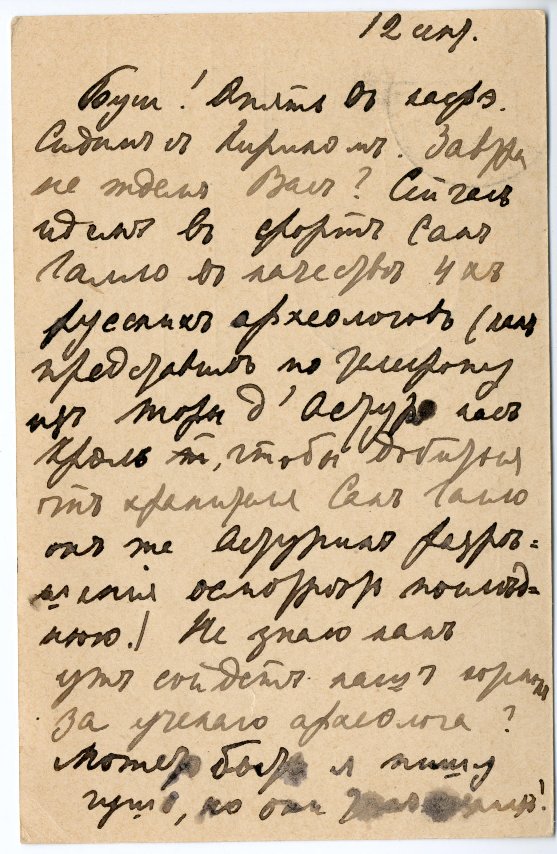 12 сент.
Буш! Опять въ кафэ.
Сидимъ съ Кирикомъ. Завтра
не ждемъ Васъ? Сейчасъ
идемъ въ фортъ Санъ
Галло въ качествѣ 4хъ
русскихъ археологовъ (насъ
представилъ по телефону
изъ Торы д'Астура насъ
чтобы добиться
отъ хранителя Санъ Галло
онъ же Астуринъ разрѣ=
шенія осмотрѣть послѣд=
нюю.) Не знаю какъ
ужъ сойдетъ нашъ
за ученаго археолога?
Можетъ быть я пишу
но они